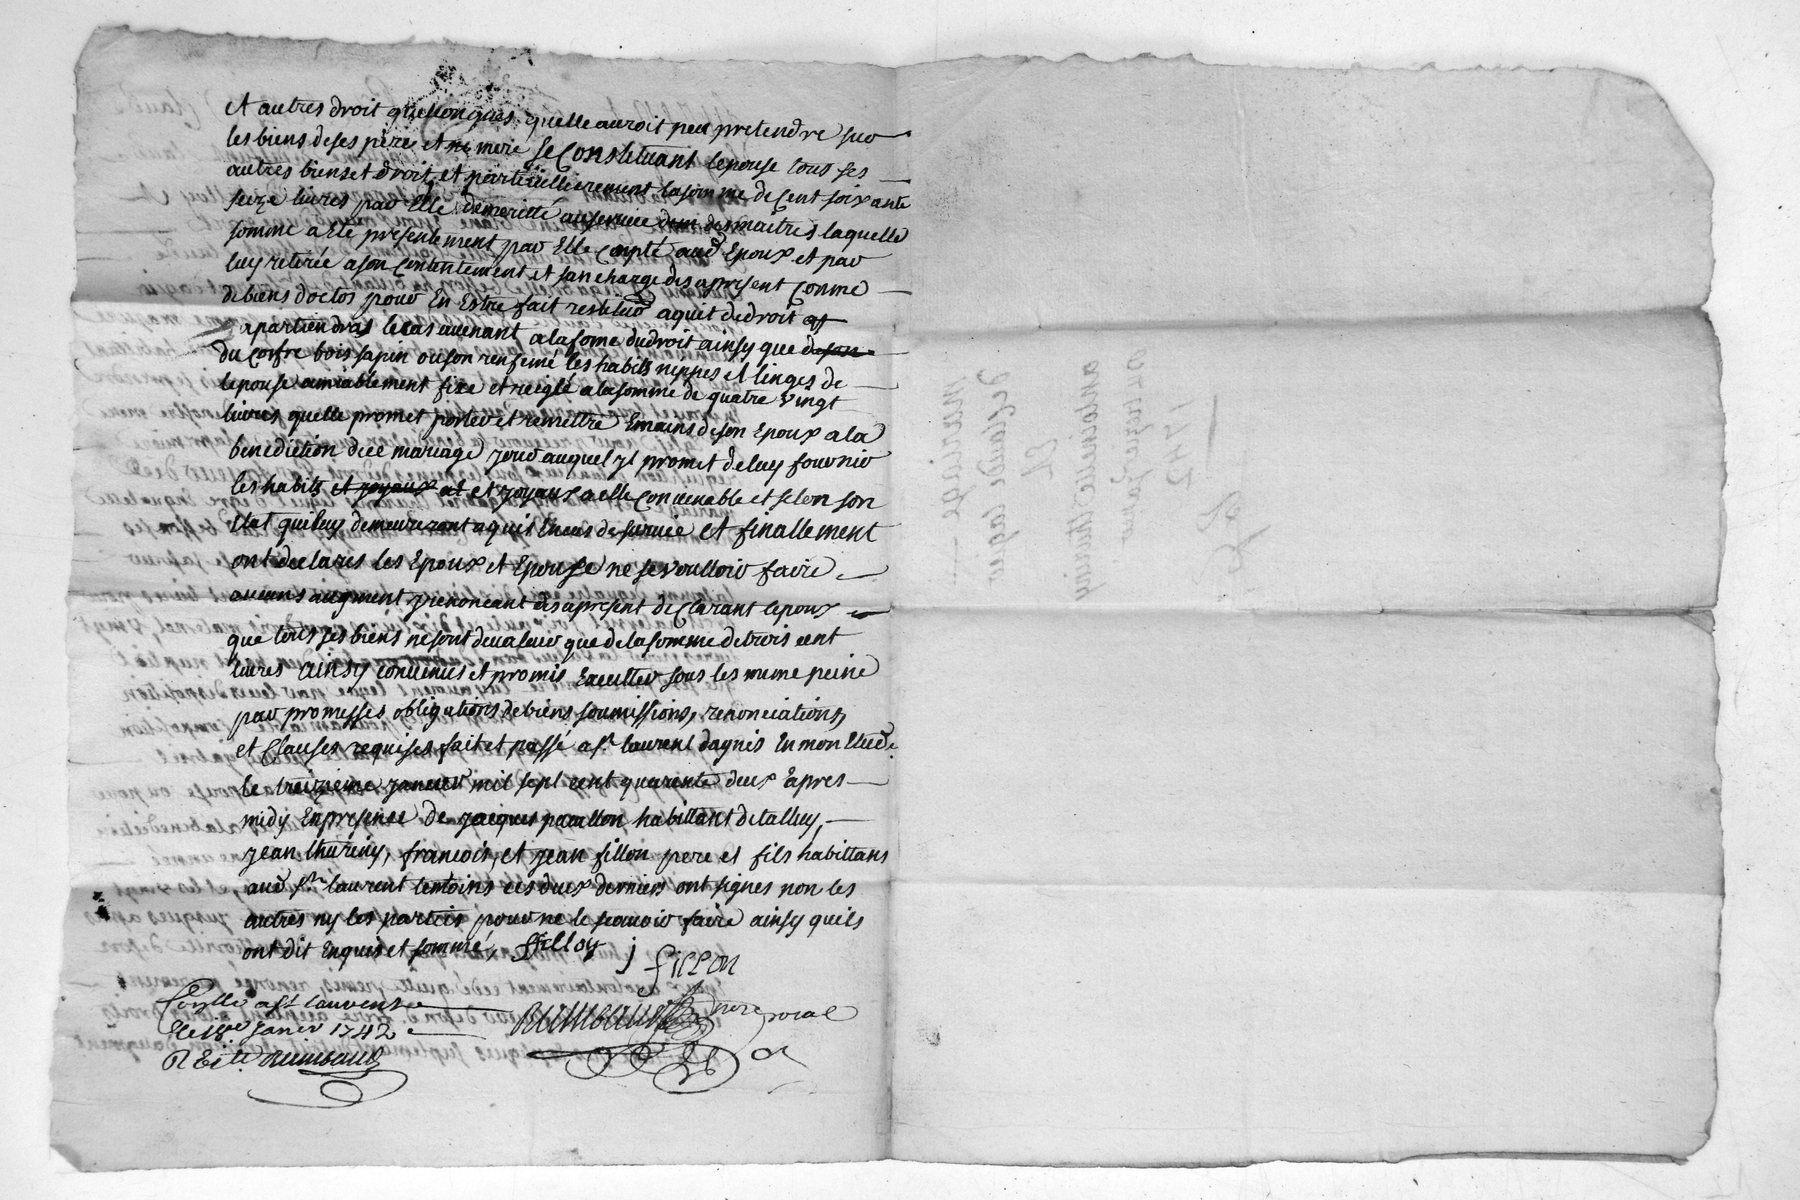 et autres droit quelconques quelle auroit peu pretendre sur
les biens de ses père et mere se Constituant lepouse tous ses
autres biens et droit, et particulierement la somme de Cent soixante
seize livres par Elle demeritté au service des maitres laquelle
somme a esté presentement par Elle Compté aud Epoux et par
luy retirée a son Contentement et sen charge des apresent Comme
de biens doctos pour En Estre fait restituõ a qui de droit
apartiendras le cas avenant a la forme du droit ainsy que
du Coffre bois sapin ou son renfermé les habits nippes et linges de
lepouse amiablement fixe et reigle a la somme de quatre vingt
livres quelle promet porter et remettre Emains de son Epoux a la
benediction dicel mariage jour auquel yl promet de luy fournir
les habits et joyaux et et joyaux a elle Convenable et selon son
Etat qui luy demeureront aquis En cas de survie et finallement
ont declares les Epoux et Epouse ne se voulloir faire
aucuns augment y renonceant des apresent declarant lepoux
que tous ses biens ne sont de valeur que de la somme de trois cent
livres ainsy convenus et promis Executter sous les meme peine
par promesses obligations de biens soumissions, renonciations,
et Clauses requises fait et passé a St laurent dagnis En mon Etude
le treizieme janvier mil sept cent quarente deux Eapres
midy En presence de jacques pacallon habittant de talluy,
jean thuriny, francois, et jean fillon pere et fils habittans
aud St laurent temoins ces deux derniers ont signes non les
autres ny les parties pour ne le scavoir faire ainsy quils
ont dit Enquis et sommé, ffilloy j fillon
Conlle a St laurens
le 18me Janer 1742
R Raimbaud
Raimbaud nore roial
Mariage
de Claude Lafleur
Et
antoinette thuriny
1742